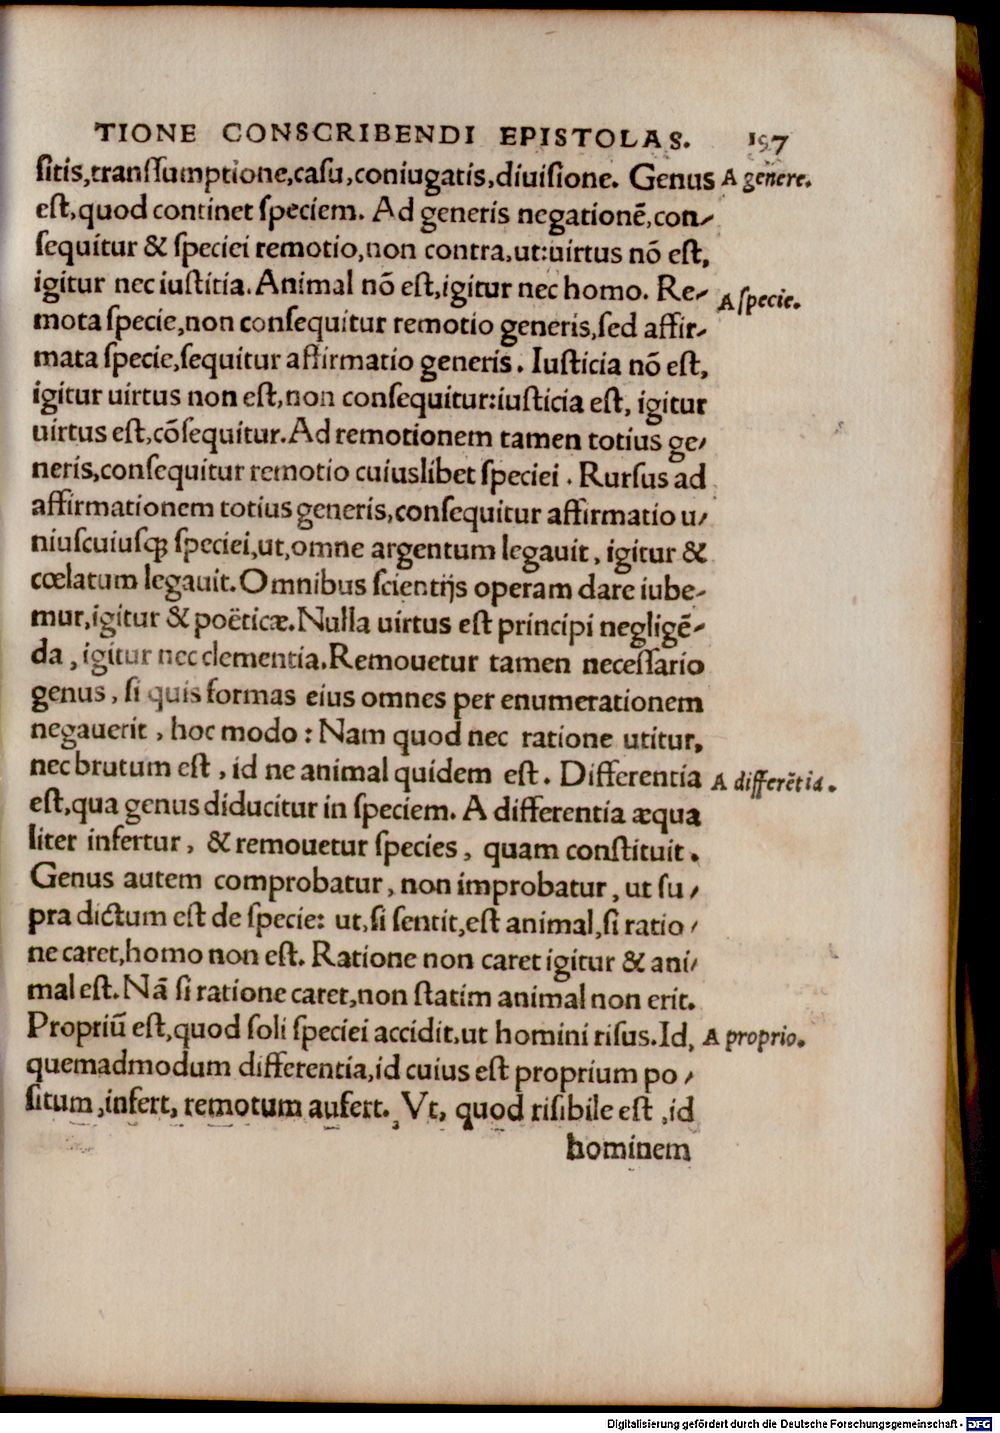 TIONE CONSCRIBENDI EPISTOLAS. 197
ſitis,tranſſumptione,caſu,coniugatis,diuiſione. Genus A genere.
eſt,quod continet ſpeciem. Ad generis negationē,con-
ſequitur & ſpeciei remotio,non contra,ut:uirtus nō eſt,
igitur nec iuſtitia. Animal nō eſt,igitur nec homo. Re- A ſpecie.
mota ſpecie,non conſequitur remotio generis,ſed affir-
mata ſpecie,ſequitur affirmatio generis. Iuſticia nō eſt,
igitur uirtus non eſt,non conſequitur:iuſticia eſt, igitur
uirtus eſt,cōſequitur. Ad remotionem tamen totius ge/
neris,conſequitur remotio cuiuslibet ſpeciei. Rurſus ad
affirmationem totius generis,conſequitur affirmatio u/
niuſcuiuſqꝫ ſpeciei,ut,omne argentum legauit, igitur &
cœlatum legauit. Omnibus ſcientijs operam dare iube-
mur,igitur & poëticæ. Nulla uirtus eſt principi negligē-
da, igitur nec clementia. Remouetur tamen neceſſario
genus, ſi quis formas eius omnes per enumerationem
negauerit, hoc modo: Nam quod nec ratione utitur,
nec brutum eſt, id ne animal quidem eſt. Differentia A differētia.
eſt,qua genus diducitur in ſpeciem. A differentia æqua
liter infertur, & remouetur ſpecies, quam conſtituit.
Genus autem comprobatur, non improbatur, ut ſu/
pra dictum eſt de ſpecie: ut,ſi ſentit,eſt animal,ſi ratio/
ne caret,homo non eſt. Ratione non caret igitur & ani/
mal eſt. Nā ſi ratione caret,non ſtatim animal non erit.
Propriū eſt,quod ſoli ſpeciei accidit,ut homini riſus. Id, A proprio.
quemadmodum differentia,id cuius eſt proprium po/
ſitum,infert, remotum aufert. Vt, quod riſibile eſt, id
hominem
Digitalisierung gefördert durch die Deutsche Forschungsgemeinschaft - DFG